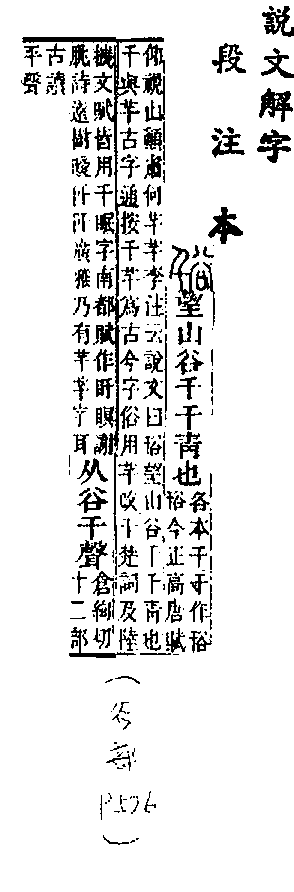 説文解字
段注本
谸 望山谷千千青也
各本千千作谸
谸今正高唐賦
仰視山顚肅何芊芊李注云說文曰谸望山谷千千青也
千與芊古字通按千芊爲古今字俗用芊改千楚詞及陸
機文賦皆用千眠字南都賦作盰瞑謝
朓詩遠樹曖阡阡廣雅乃有芊芊字耳
从谷千聲
倉絢切
十二部
古讀
平聲
(谷部 P576)